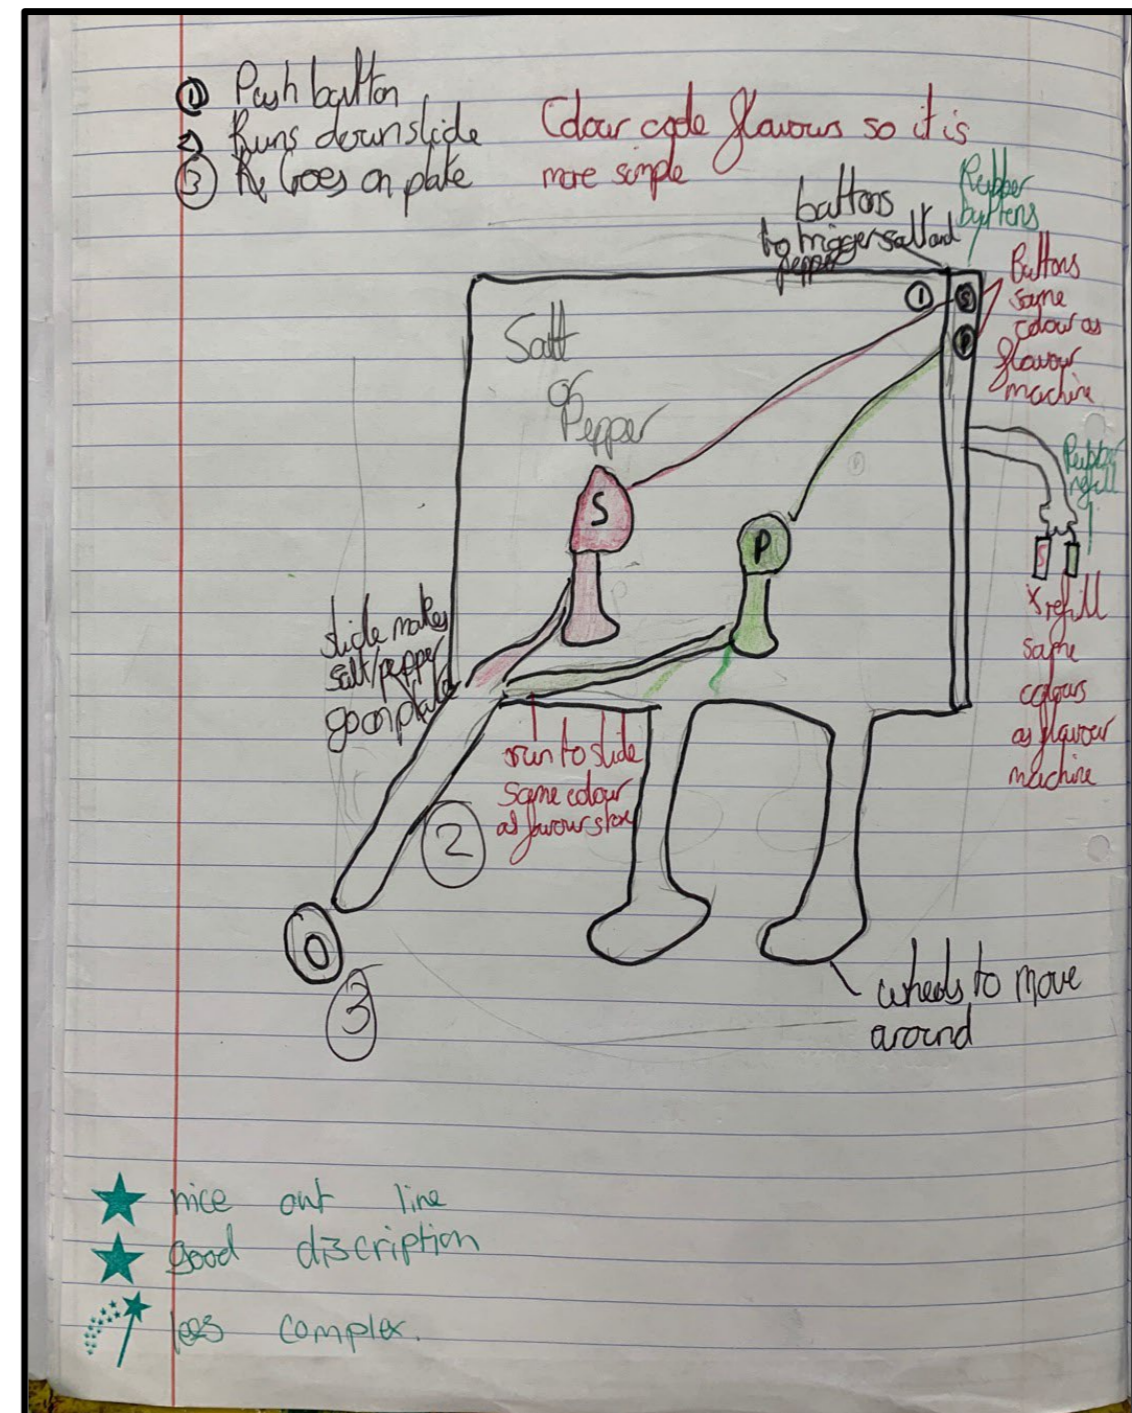 ① Push button
2 Runs down slide
③ Goes on plate
Colour code flavours so it is
more simple
buttons
to trigger salt and
pepper
Rubber
buttens
Buttons
same
colour as
flavour
machine
①
S
P
Salt
or
Pepper
S
P
Rubber
refill
S
refill
same
colours
as flavour
machine
slide makes
salt/pepper
go on plate
run to slide
same colour
as flavour store
②
③
wheels to move
around
nice out line
good discription
less complex.